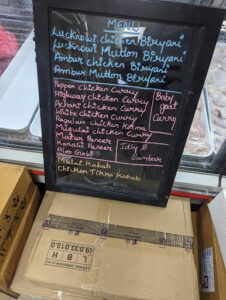 MENU
Lucknowi chicken Biryani
Lucknowi Muton Biryani
Ambur chicken Biryani
Ambur Mutton Biryani
Pepper chicken Curry
Highway chicken Curry
Achari chicken Curry
White chicken Curry
Regular chicken Korma
Mugulai chicken Curry
Matar Paneer
Karahi Paneer
Aloo Gobi
Baby
goat
Curry
Idly &
Sambar
Malai Kabab
Chicken Tikka Kabab
L B H
69.033.015.0